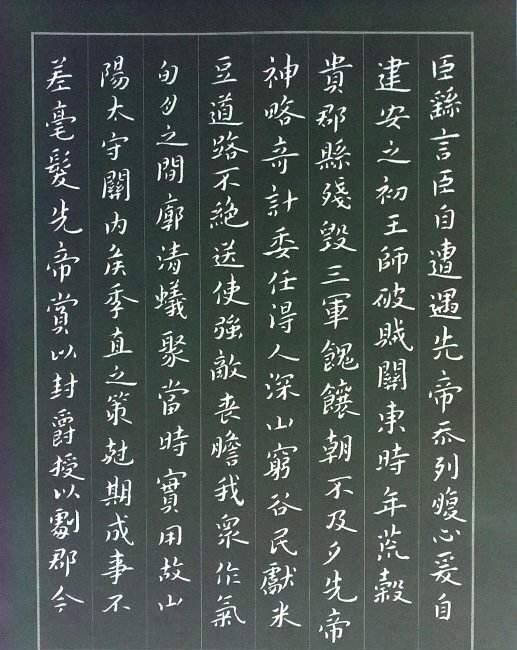 臣繇言臣自遭遇先帝忝列腹心爰自
建安之初王師破賊關東時年荒穀
貴郡縣殘毀三軍餽饟朝不及夕先帝
神略奇計委任得人深山窮谷民獻米
豆道路不絶送使強敵喪膽我眾作氣
旬月之間廓清蟻聚當時實用故山
陽太守關內侯季直之策尅期成事不
差毫髮先帝賞以封爵授以劇郡今